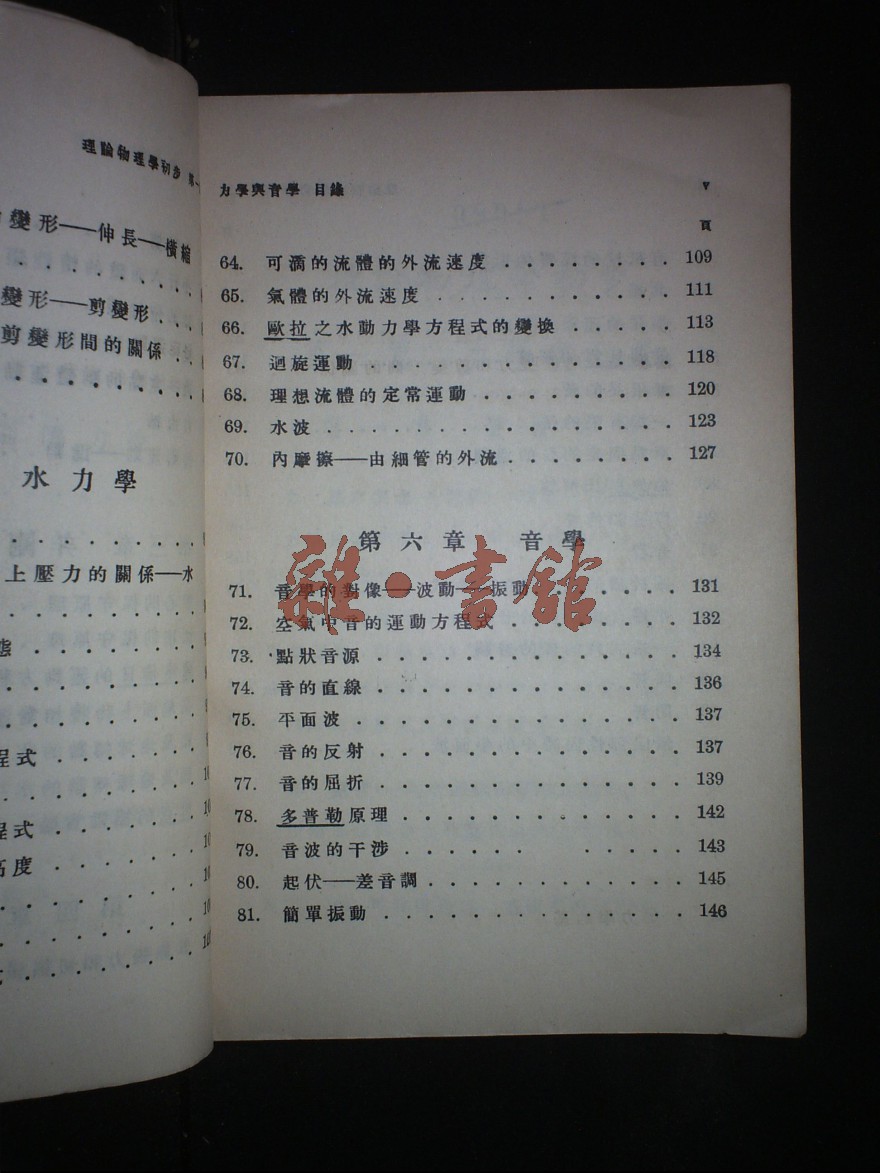 理論物理學初步 第一
變形——伸長——橫縮
變形——剪變形
剪變形間的關係
水力學
上壓力的關係——水
態
程式
程式
高度
力學與音學 目錄 v
頁
64. 可滴的流體的外流速度 109
65. 氣體的外流速度 111
66. 歐拉之水動力學方程式的變換 113
67. 迴旋運動 118
68. 理想流體的定常運動 120
69. 水波 123
70. 內摩擦——由細管的外流 127
第六章 音學
71. 音學的對像——波動——振動 131
72. 空氣中音的運動方程式 132
73. 點狀音源 134
74. 音的直線 136
75. 平面波 137
76. 音的反射 137
77. 音的屈折 139
78. 多普勒原理 142
79. 音波的干涉 143
80. 起伏——差音調 145
81. 簡單振動 146
雜·書館